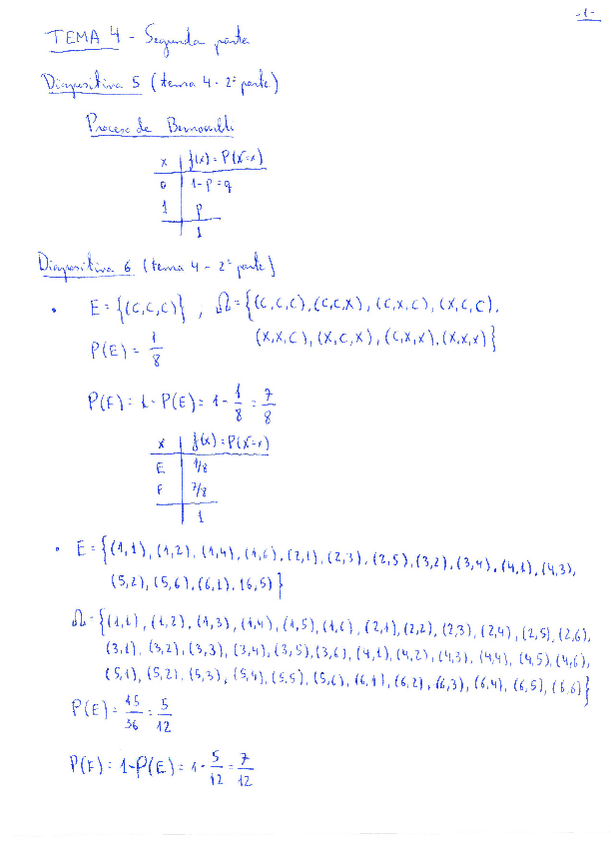 -1-
TEMA 4 - Segunda parte
Diapositiva 5 (tema 4 - 2ª parte)
Proceso de Bernouilli
x | f(x) = P(X=x)
0 | 1-p=q
1 | p
1
Diapositiva 6 (tema 4 - 2ª parte)
• E = {(C,C,C)} , Ω = {(C,C,C),(C,C,X),(C,X,C),(X,C,C),
(X,X,C),(X,C,X),(C,X,X),(X,X,X)}
P(E) = 1/8
P(F) = 1 - P(E) = 1 - 1/8 = 7/8
x | f(x) = P(X=x)
E | 1/8
F | 7/8
1
• E = {(1,1),(1,2),(1,4),(1,6),(2,1),(2,3),(2,5),(3,2),(3,4),(4,1),(4,3),
(5,2),(5,6),(6,1),(6,5)}
Ω = {(1,1),(1,2),(1,3),(1,4),(1,5),(1,6),(2,1),(2,2),(2,3),(2,4),(2,5),(2,6),
(3,1),(3,2),(3,3),(3,4),(3,5),(3,6),(4,1),(4,2),(4,3),(4,4),(4,5),(4,6),
(5,1),(5,2),(5,3),(5,4),(5,5),(5,6),(6,1),(6,2),(6,3),(6,4),(6,5),(6,6)}
P(E) = 15/36 = 5/12
P(F) = 1-P(E) = 1 - 5/12 = 7/12